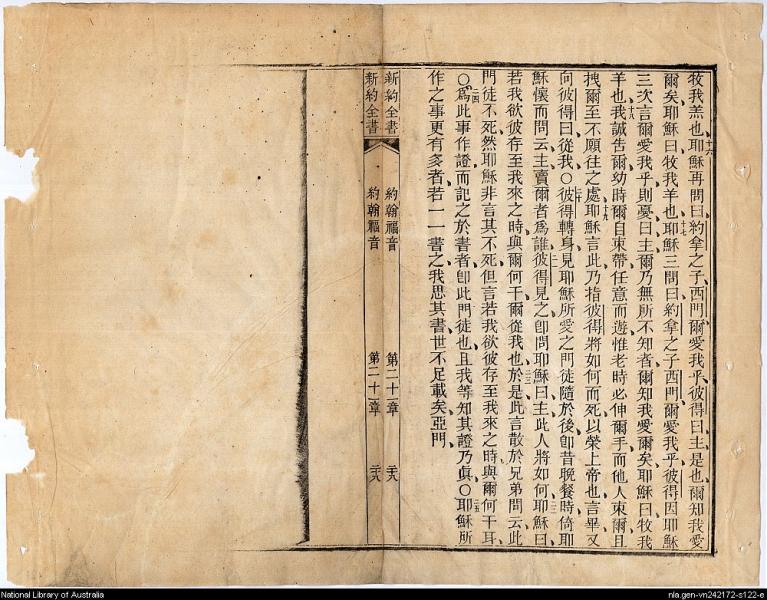 牧我羔也、耶穌再問曰、約拿之子西門、爾愛我乎、彼得曰、主是也、爾知我愛
爾矣、耶穌曰、牧我羊也、耶穌三問曰、約拿之子西門、爾愛我乎、彼得因耶穌
三次言爾愛我乎、則憂曰、主、爾乃無所不知者、爾知我愛爾矣、耶穌曰、牧我
羊也、我誠告爾、幼時爾自束帶、任意而遊、惟老時必伸爾手、而他人束爾、且
拽爾至不願往之處、耶穌言此、乃指彼得將如何而死以榮上帝也、言畢、又
向彼得曰、從我○彼得轉身、見耶穌所愛之門徒隨於後、卽昔晚餐時、倚耶
穌懷而問云、主、賣爾者爲誰、彼得見之、卽問耶穌曰、主、此人將如何、耶穌曰、
若我欲彼存至我來之時、與爾何干、爾從我也、於是此言散於兄弟間、云此
門徒不死、然耶穌非言其不死、但言若我欲彼存至我來之時、與爾何干耳、
○爲此事作證、而記之於書者、卽此門徒也、且我等知其證乃眞○耶穌所
作之事、更有多者、若一一書之、我思其書、世不足載矣、亞門、
新約全書 約翰福音 第二十一章
新約全書 約翰福音 第二十一章
National Library of Australia
nla.gen-vn242172-s122-e